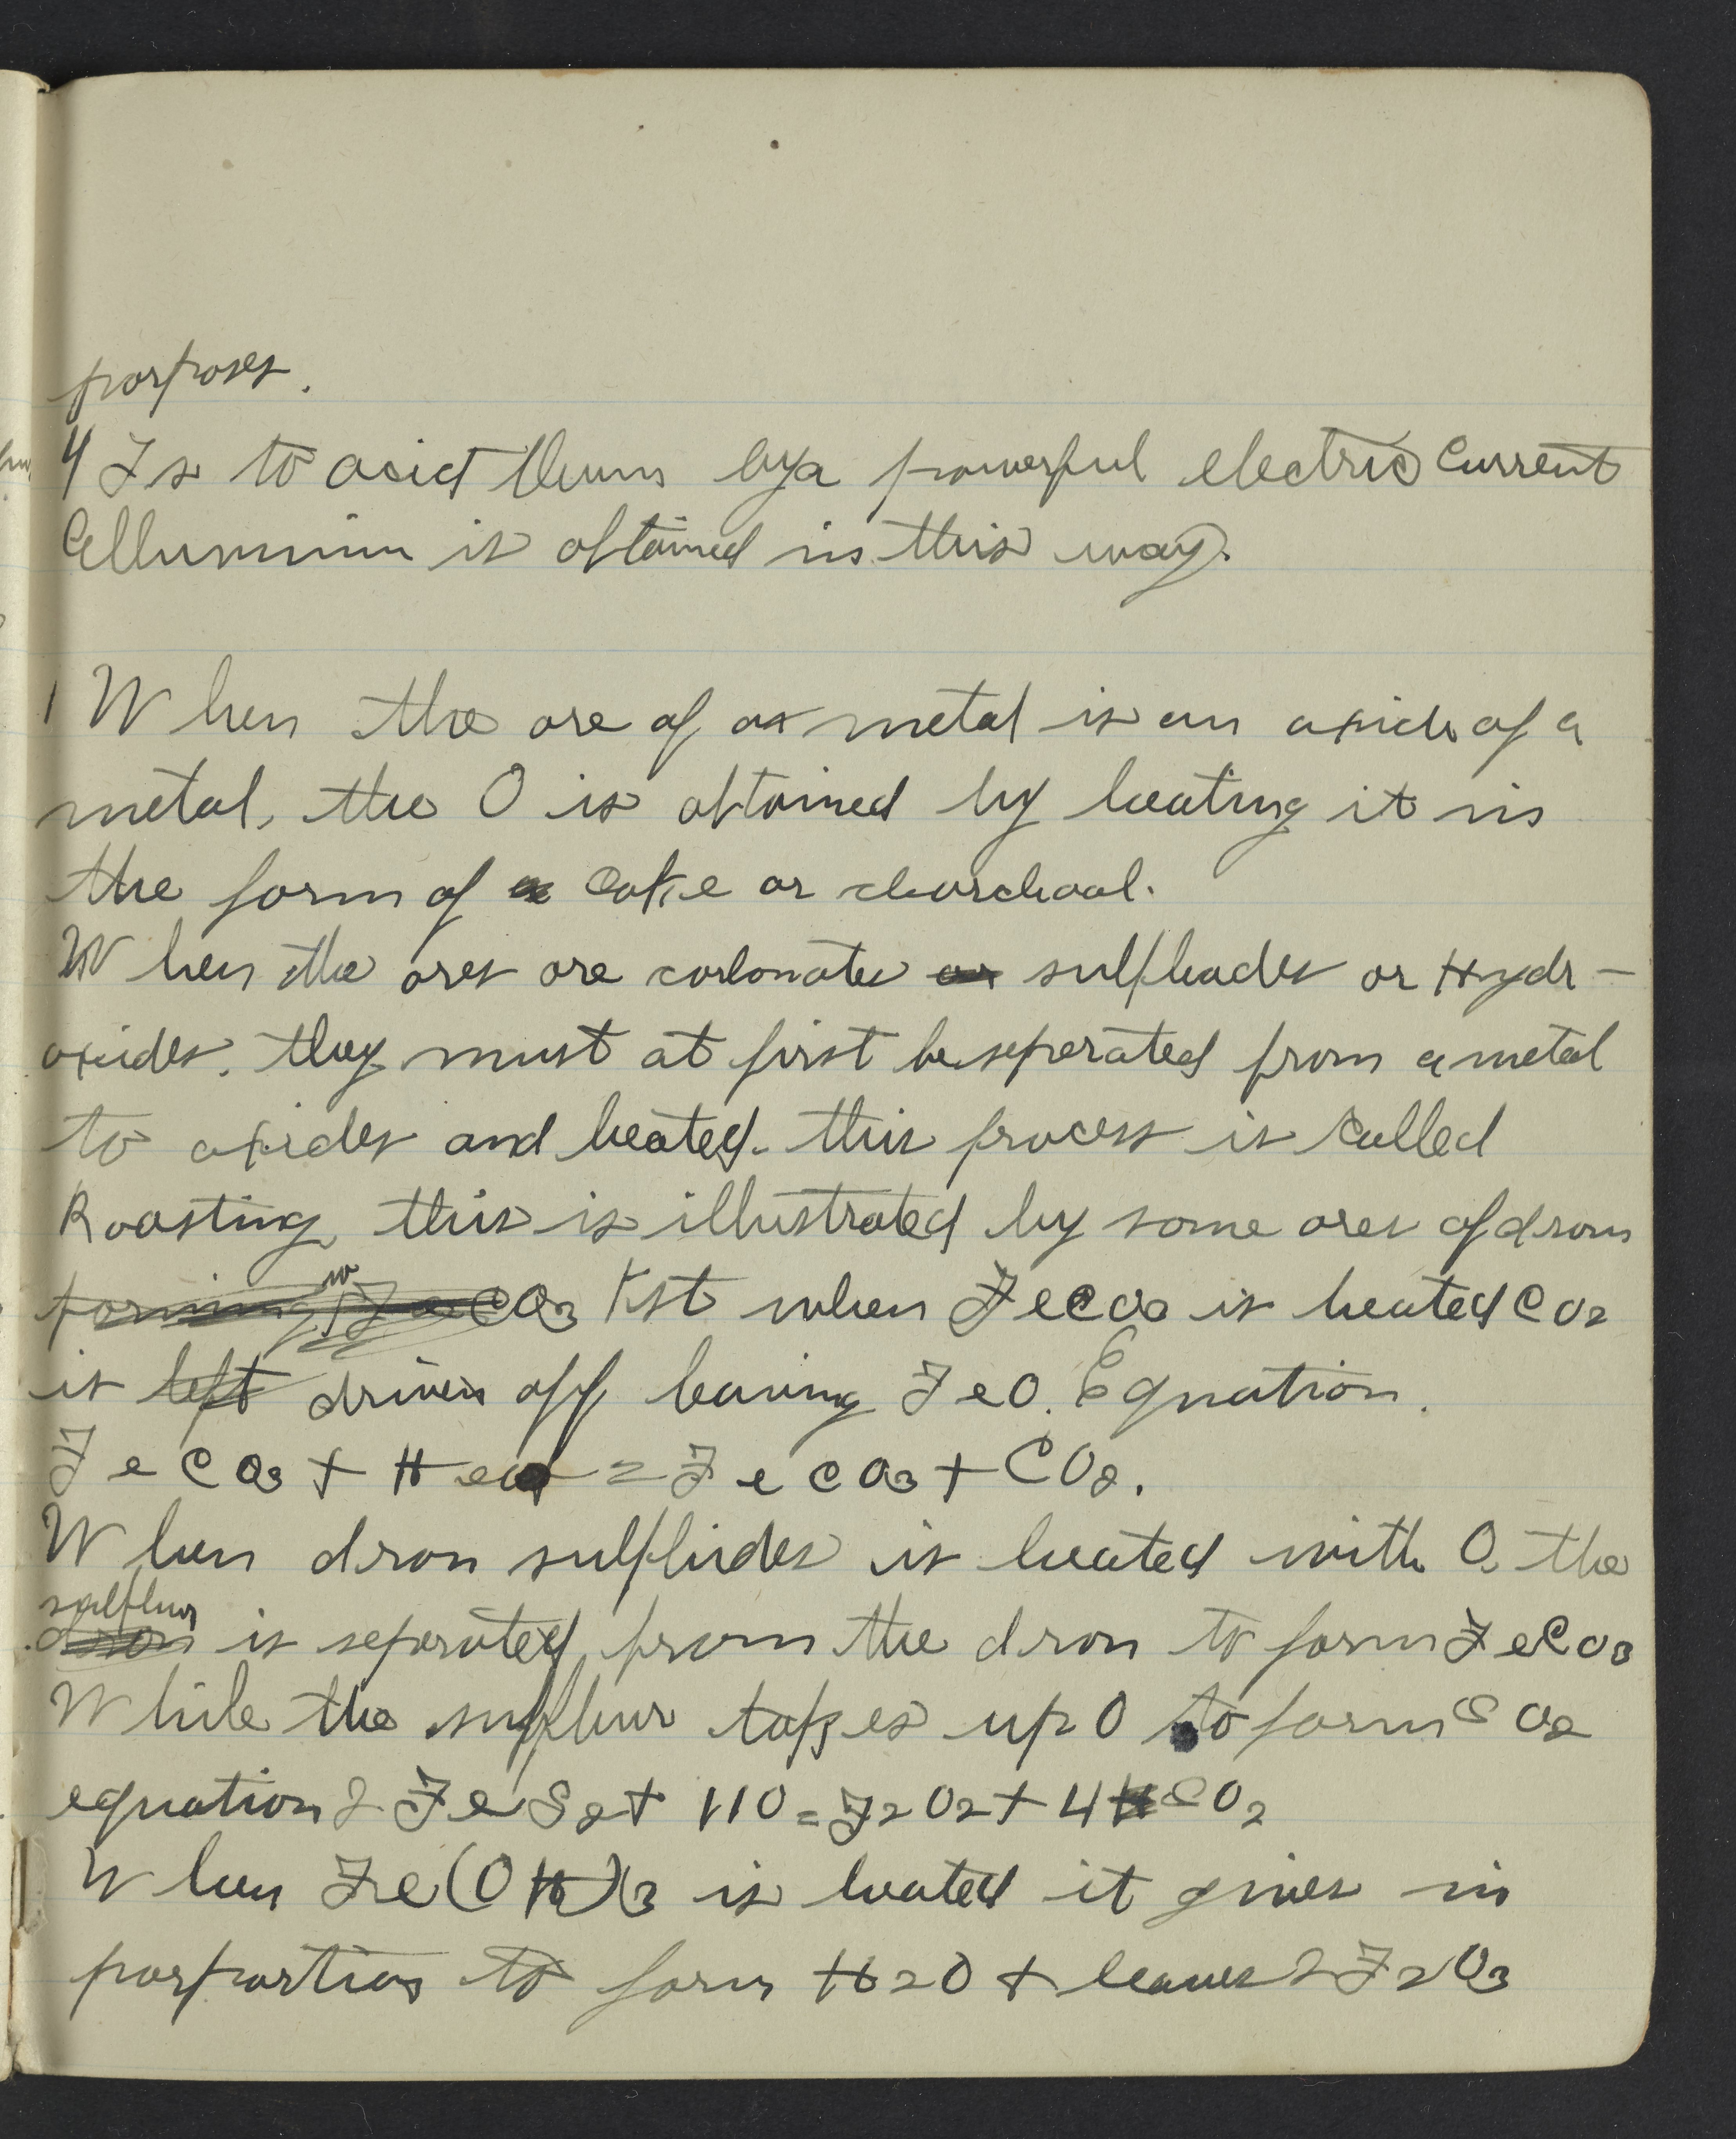 porposes.
4 Is to acid them by a powerful electric Current
Allumminn is obtained in this way.
1 When the ore of a metal is an oxide of a
metal, the O is obtained by heating it in
the form of coke or charchoal.
When the ores are carbonates sulphades or Hydr-
oxides. they must at first be seperated from a metal
to oxides and heated. this process is called
Roasting this is illustrated by some ores of dron
CO3 1st when FeCO3 is heated CO2
is left driven off leaving FeO. Equation.
FeCO3 + Heat = FeCO3 + CO2.
When dron sulphides is heated with O. the
sulphur
dron is seperated from the dron to form FeCO3
While the sulphur takes up O to form SO2
equation 2FeS2 + 11O = F2O2 + 4SO2
When Fe(OH)3 is heated it gives in
porportion to form H2O + leaves 2F2O3